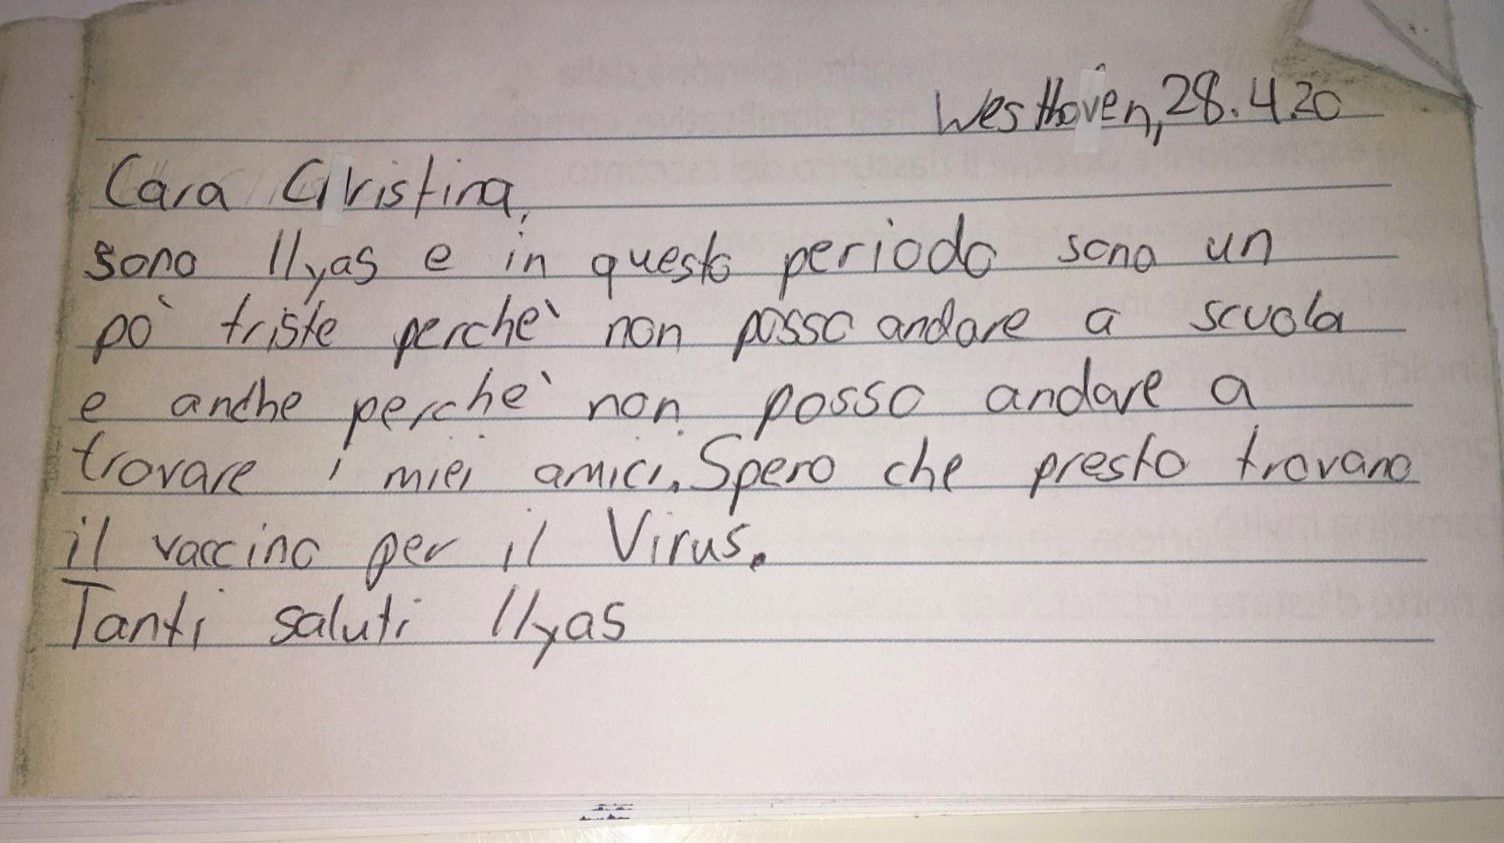 Westhoven, 28.4.20
Cara Christina,
sono Ilyas e in questo periodo sono un
pò triste perchè non posso andare a scuola
e anche perchè non posso andare a
trovare i miei amici. Spero che presto trovano
il vaccino per il Virus.
Tanti saluti Ilyas